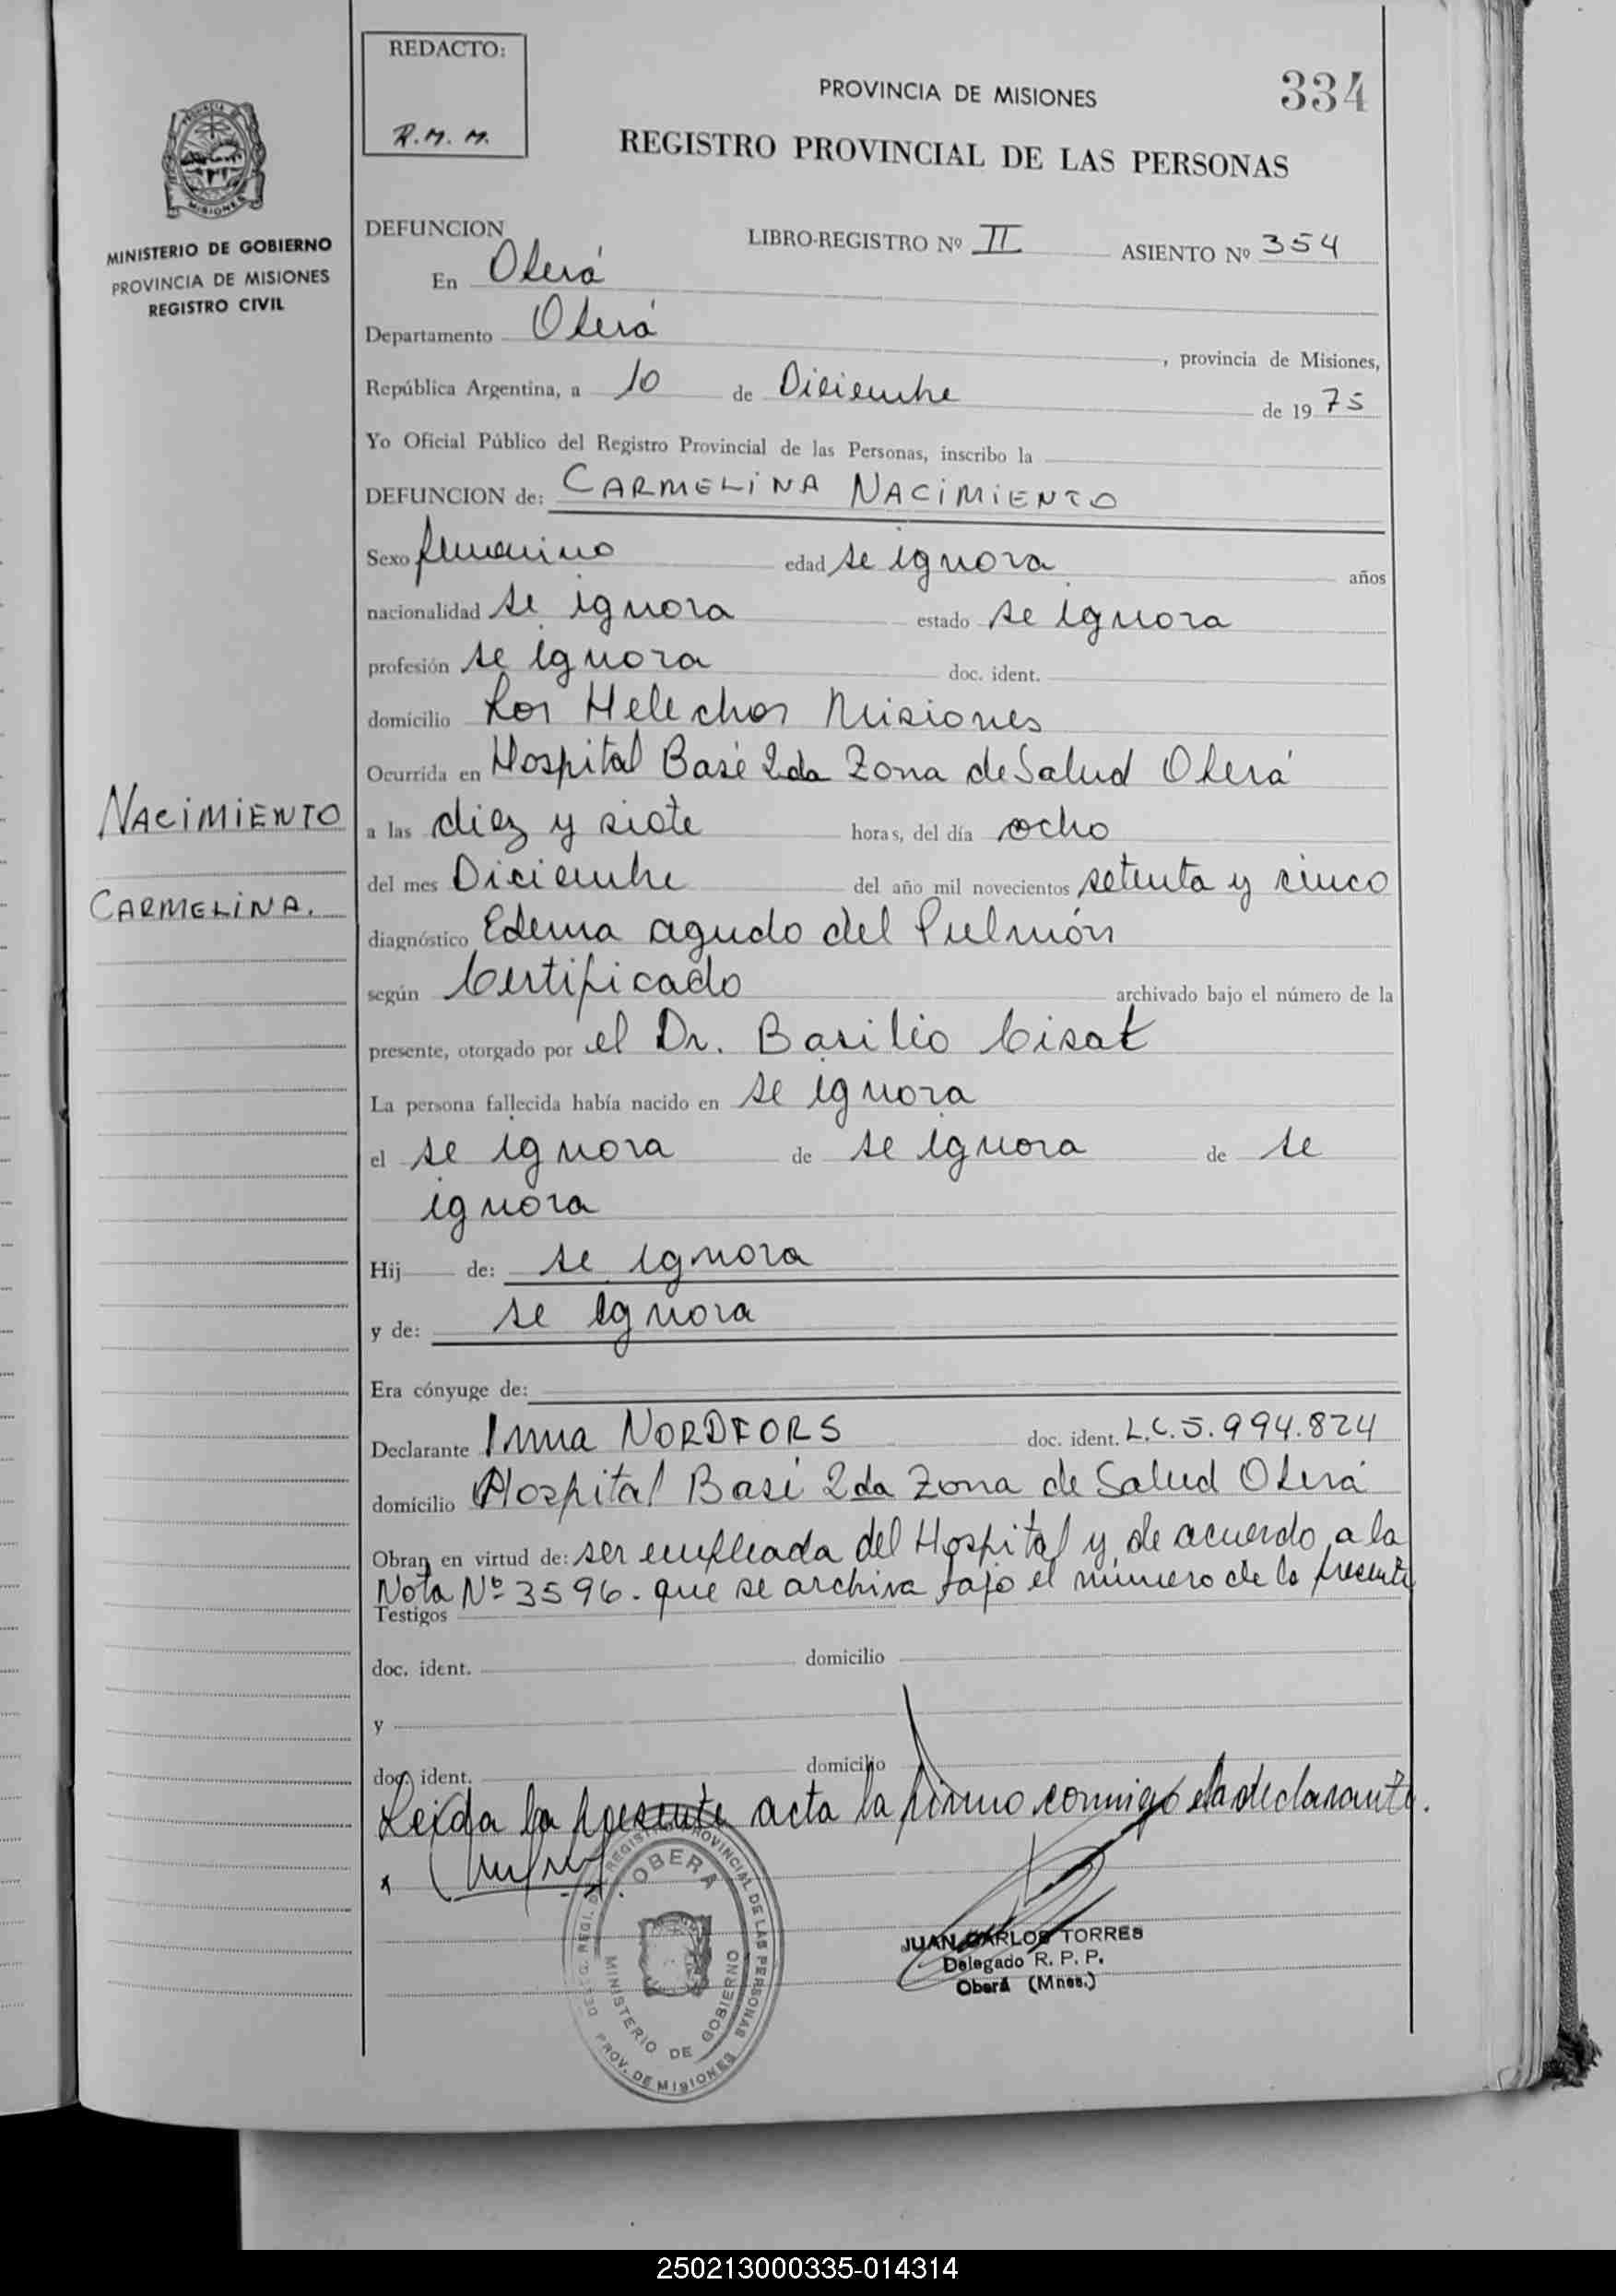 REDACTO:
R.M.M.
334
PROVINCIA DE MISIONES
REGISTRO PROVINCIAL DE LAS PERSONAS
MISIONES
MINISTERIO DE GOBIERNO
PROVINCIA DE MISIONES
REGISTRO CIVIL
DEFUNCION LIBRO-REGISTRO Nº II ASIENTO Nº 354
En Oberá
Departamento Oberá , provincia de Misiones,
República Argentina, a 10 de Diciembre de 1975
Yo Oficial Público del Registro Provincial de las Personas, inscribo la
DEFUNCION de: CARMELINA NACIMIENTO
Sexo femenino edad se ignora años
nacionalidad se ignora estado se ignora
profesión se ignora doc. ident.
domicilio Los Helechos Misiones
Ocurrida en Hospital Base 2da Zona de Salud Oberá
NACIMIENTO
a las diez y siete horas, del día ocho
del mes Diciembre del año mil novecientos setenta y cinco
CARMELINA.
diagnóstico Edema agudo del Pulmón
según Certificado archivado bajo el número de la
presente, otorgado por el Dr. Basilio Cisat
La persona fallecida había nacido en se ignora
el se ignora de se ignora de se
ignora
Hij de: se ignora
y de: se ignora
Era cónyuge de:
Declarante Irma NORDFORS doc. ident. L.C. 5.994.824
domicilio Hospital Base 2da Zona de Salud Oberá
Obran en virtud de: ser empleada del Hospital y de acuerdo a la
Nota Nº 3596. que se archiva bajo el número de la presente
Testigos
doc. ident. domicilio
y
doc. ident. domicilio
Leída la presente acta la firma conmigo la declarante.
OBERA
MINISTERIO DE GOBIERNO
REGISTRO PROVINCIAL DE LAS PERSONAS
PROV. DE MISIONES
JUAN CARLOS TORRES
Delegado R. P. P.
Oberá (Mnes.)
250213000335-014314